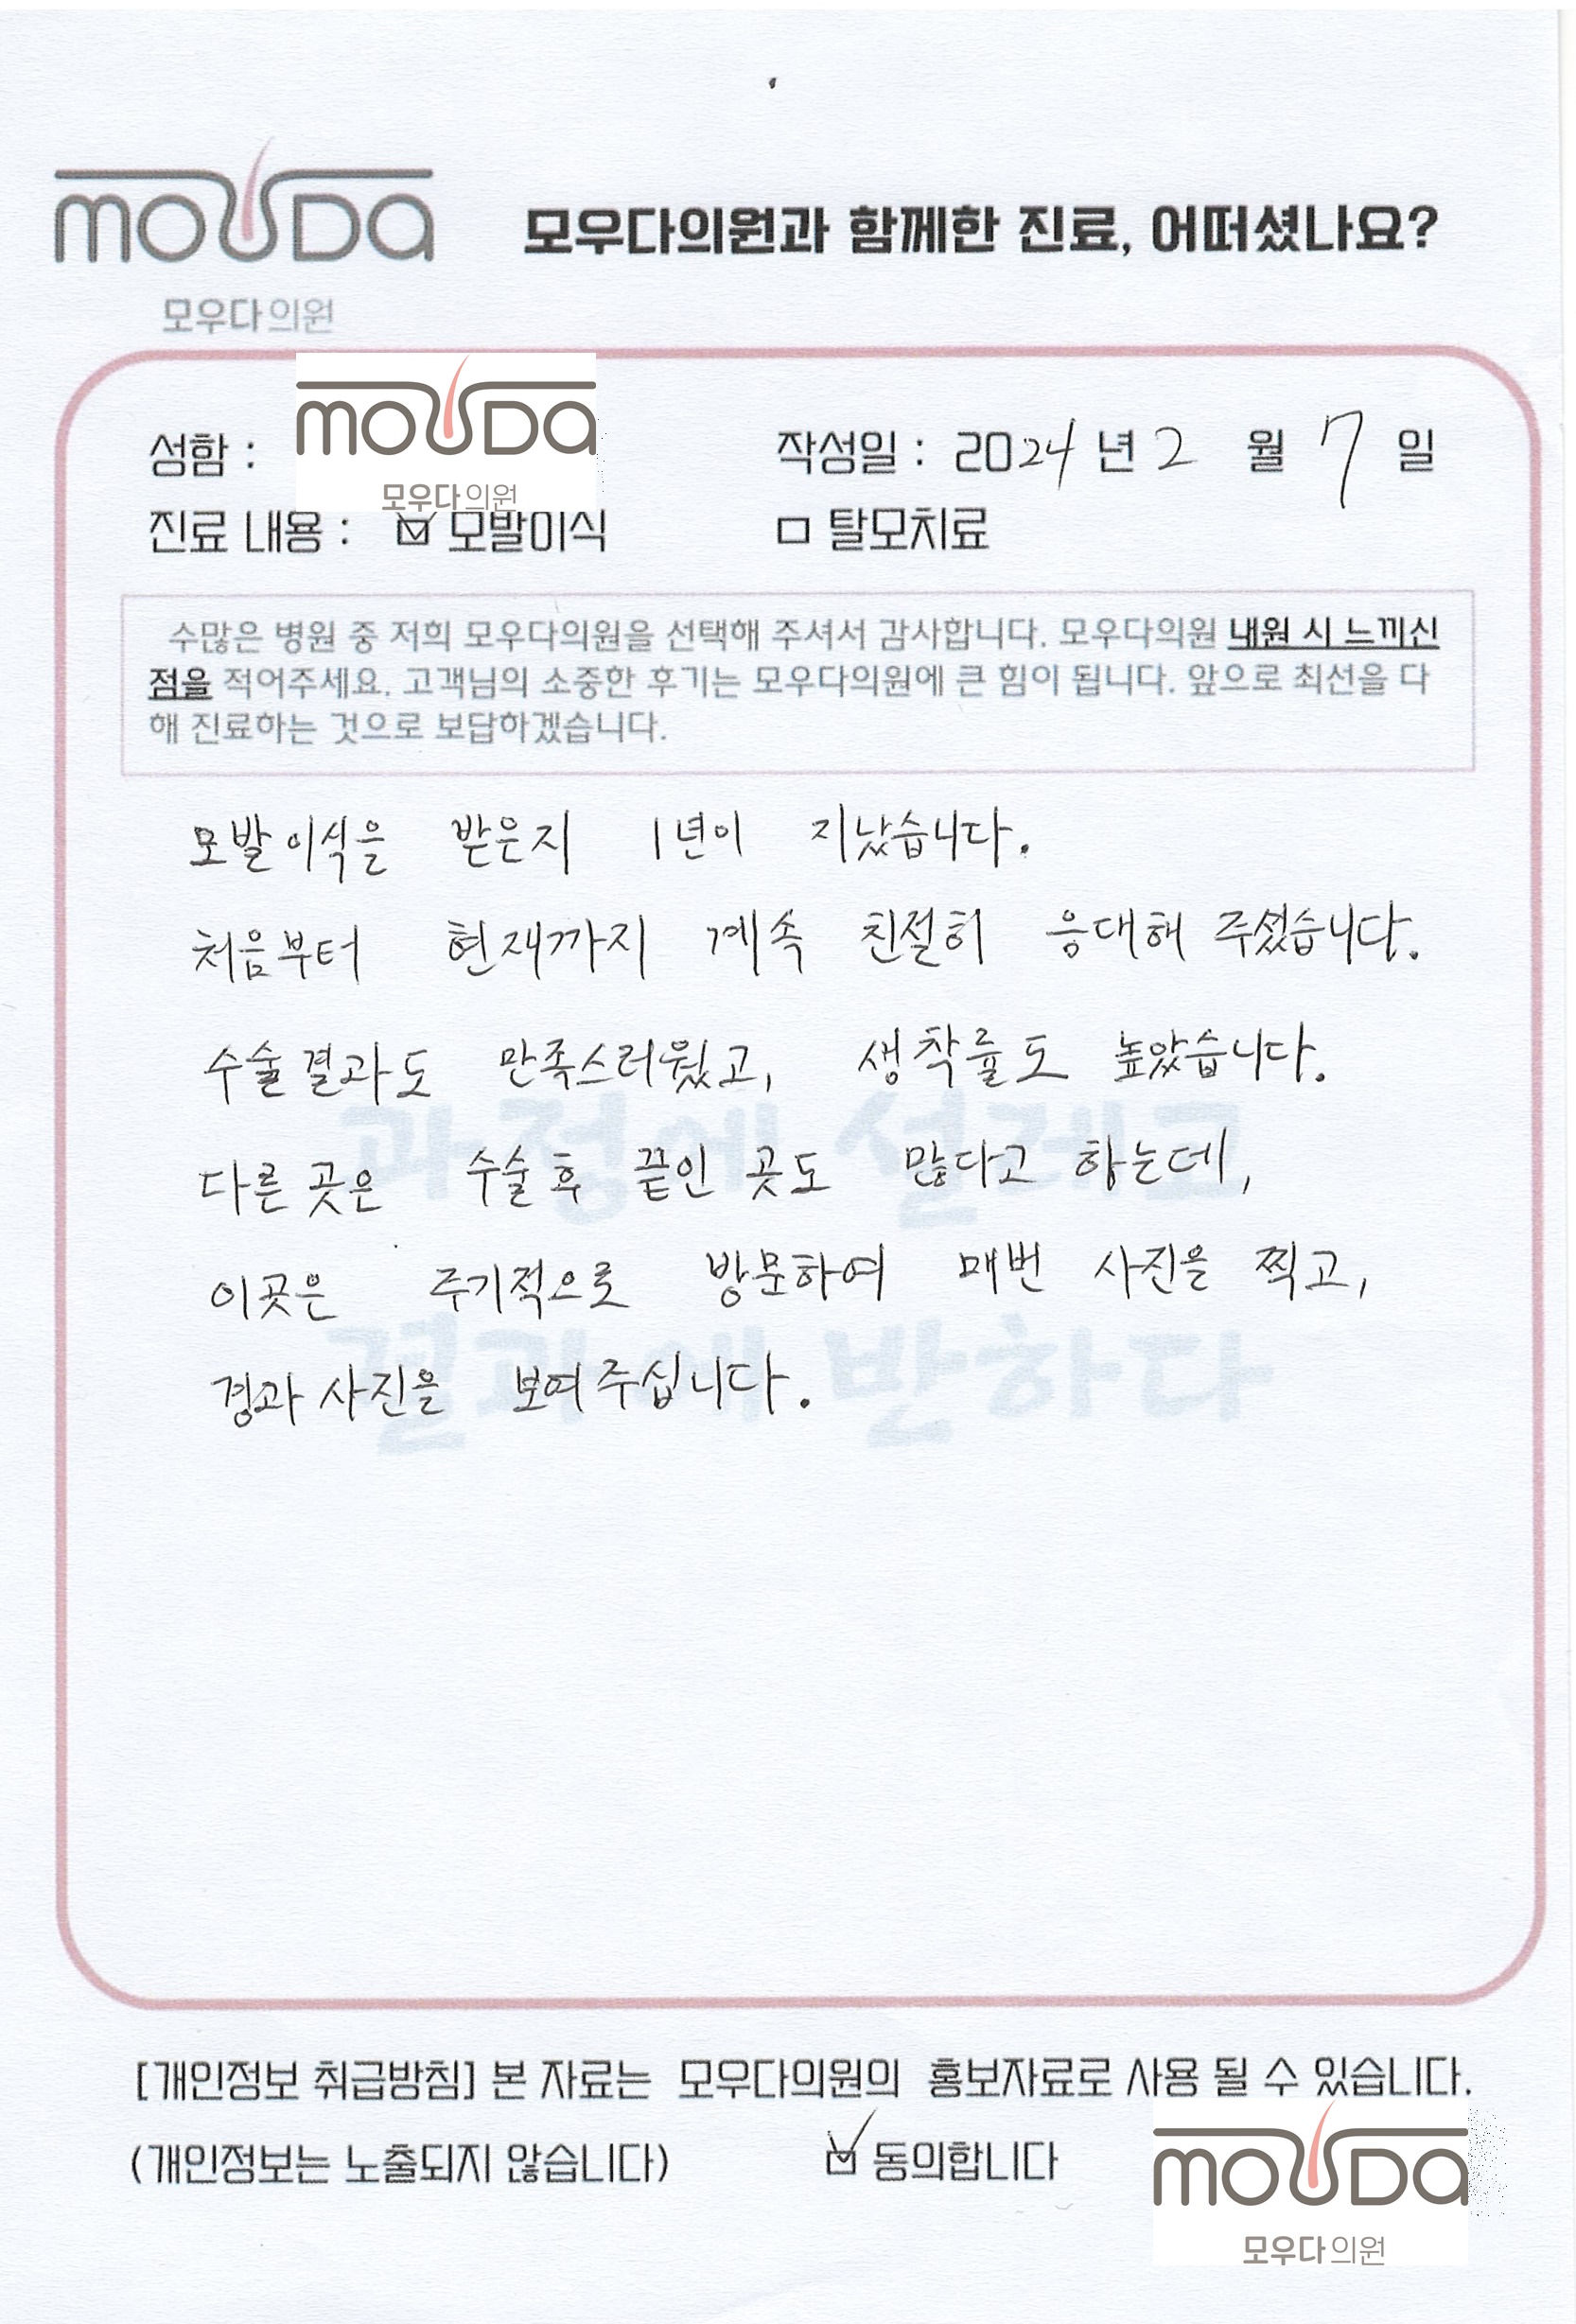 mouda
모우다의원
모우다의원과 함께한 진료, 어떠셨나요?
mouda
모우다의원
성함 :
작성일 : 2024 년 2 월 7 일
진료 내용 : ☑ 모발이식 □ 탈모치료
수많은 병원 중 저희 모우다의원을 선택해 주셔서 감사합니다. 모우다의원 내원 시 느끼신
점을 적어주세요. 고객님의 소중한 후기는 모우다의원에 큰 힘이 됩니다. 앞으로 최선을 다
해 진료하는 것으로 보답하겠습니다.
모발이식을 받은지 1년이 지났습니다.
처음부터 현재까지 계속 친절히 응대해 주셨습니다.
수술결과도 만족스러웠고, 생착률도 높았습니다.
과정에 설레고
다른 곳은 수술 후 끝인 곳도 많다고 하는데,
이곳은 주기적으로 방문하여 매번 사진을 찍고,
결과에 반하다
경과 사진을 보여주십니다.
[개인정보 취급방침] 본 자료는 모우다의원의 홍보자료로 사용 될 수 있습니다.
(개인정보는 노출되지 않습니다) ☑ 동의합니다
mouda
모우다의원